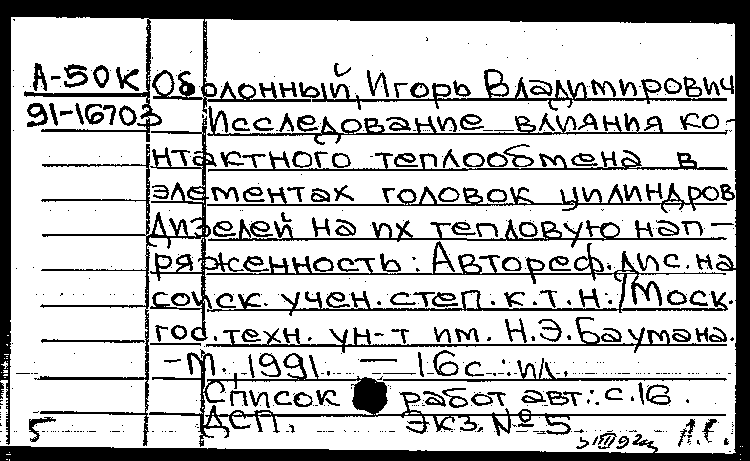 А-50К Оболонный, Игорь Владимирович
91-16703 Исследование влияния ко-
нтактного теплообмена в
элементах головок цилиндров
дизелей на их тепловую нап-
ряженность: Автореф. дис. на
соиск. учен. степ. к.т.н. /Моск.
гос. техн. ун-т им. Н.Э.Баумана.
-М., 1991. — 16с.:ил.
Список работ авт.: с.16.
ДСП. Экз. №5.
5